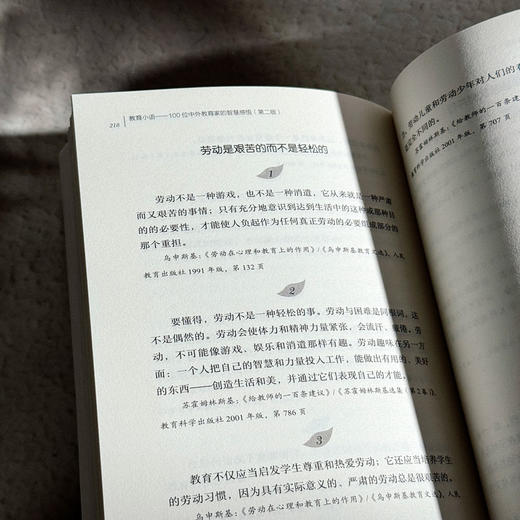 218 教育小语——100位中外教育家的智慧感悟(第二版)
劳动是艰苦的而不是轻松的
1
劳动不是一种游戏,也不是一种消遣,它从来就是一种严肃
而又艰苦的事情;只有充分地意识到达到生活中的这种或那种目
的的必要性,才能使人负起作为任何真正劳动的必要组成部分的
那个重担。
乌申斯基:《劳动在心理和教育上的作用》/《乌申斯基教育文选》,人民
教育出版社1991年版,第132页
2
要懂得,劳动不是一种轻松的事。劳动与困难是同根词,这
不是偶然的。劳动会使体力和精神力量紧张,会流汗、疲倦。劳
动,不可能像游戏、娱乐和消遣那样有趣。劳动趣味在另一方
面:一个人把自己的智慧和力量投入工作,能做出有用的、美好
的东西——创造生活和美,并通过它们表现自己的才能。
苏霍姆林斯基:《给教师的一百条建议》/《苏霍姆林斯基选集(第2卷)》,
教育科学出版社2001年版,第786页
3
教育不仅应当启发学生尊重和热爱劳动;它还应当培养学生
的劳动习惯,因为具有实际意义的、严肃的劳动总是很艰苦的。
乌申斯基:《劳动在心理和教育上的作用》/《乌申斯基教育文选》,人民
动,劳动儿童和劳动少年对人们的看
完全不同的。
《给教师的一百条建议》
育科学出版社2001年版,第707页